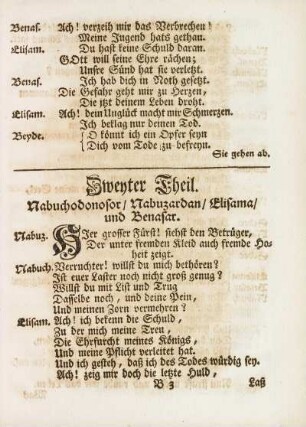 Benas. Ach! verzeih mir das Verbrechen!
Meine Jugend hats gethan.
Elisam. Du hast keine Schuld daran.
GOtt will seine Ehre rächen;
Unsre Sünd hat sie verletzt.
Benas. Ich hab dich in Noth gesetzt.
Die Gefahr geht mir zu Herzen,
Die jtzt deinem Leben droht.
Elisam. Ach! dein Unglück macht mir Schmerzen.
Ich beklag nur deinen Tod.
Beyde. O könnt ich ein Opfer seyn
Dich vom Tode zu befreyn.
Sie gehen ab.
Zweyter Theil.
Nabuchodonosor/ Nabuzardan/ Elisama/
und Benasar.
Nabuz. HIer grosser Fürst! siehst den Betrüger,
Der unter fremden Kleid auch fremde Ho-
heit zeigt.
Nabuch. Verruchter! willst du mich bethören?
Ist euer Laster noch nicht groß genug?
Willst du mir List und Trug
Dasselbe noch, und deine Pein,
Und meinen Zorn vermehren?
Elisam. Ach! ich bekenn die Schuld,
Zu der mich meine Treu,
Die Ehrfurcht meines Königs,
Und meine Pflicht verleitet hat.
Und ich gesteh, daß ich des Todes würdig sey.
Ach! zeig mir doch die letzte Huld,
B 3 Laß